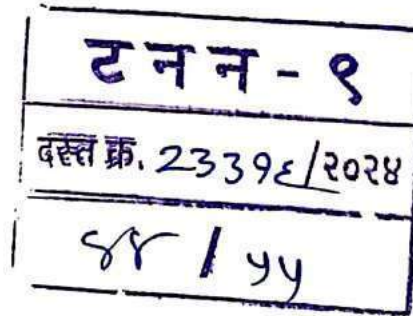 ट न न - ९
दस्त क्र. 2339६/२०२४
४४ / ५५